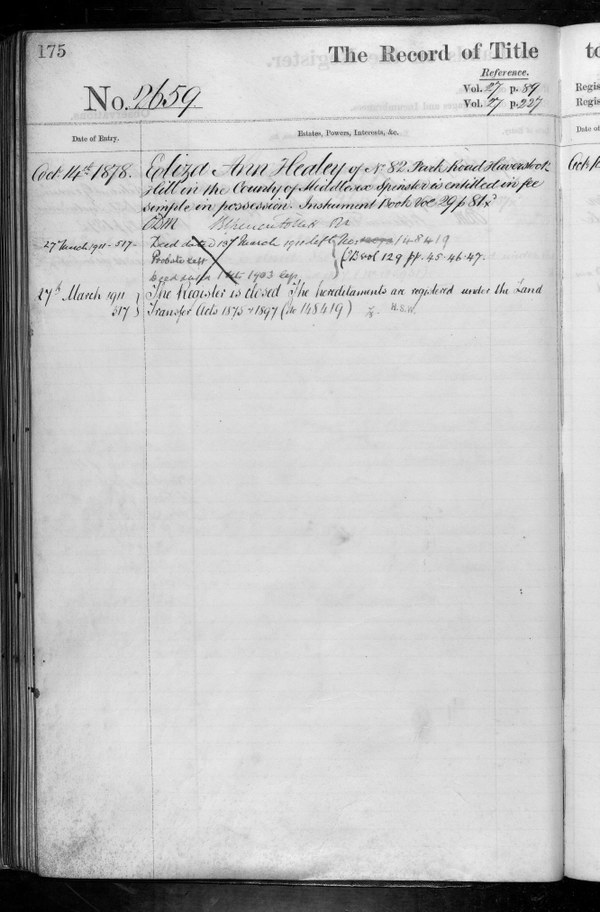 175
The Record of Title
to
Reference.
No. 2659
Vol. 27 p. 89
Vol. 27 p. 227
Regis
Regis
Date of Entry.
Estates, Powers, Interests, &c.
Date of
Oct 14th 1878.
Eliza Ann Healey of No 82 Park Road Haverstock
Hill in the County of Middlesex Spinster is entitled in fee
simple in possession. Instrument Book Vol 29 p 81
27 March 1911 - 517 -
Deed dated 15th March 1911 148419
Probate
OB vol 129 pp. 45. 46. 47.
1903
27th March 1911
The Register is closed The hereditaments are registered under the Land
517
Transfer Acts 1875 & 1897 (No 148419) H.S.W.